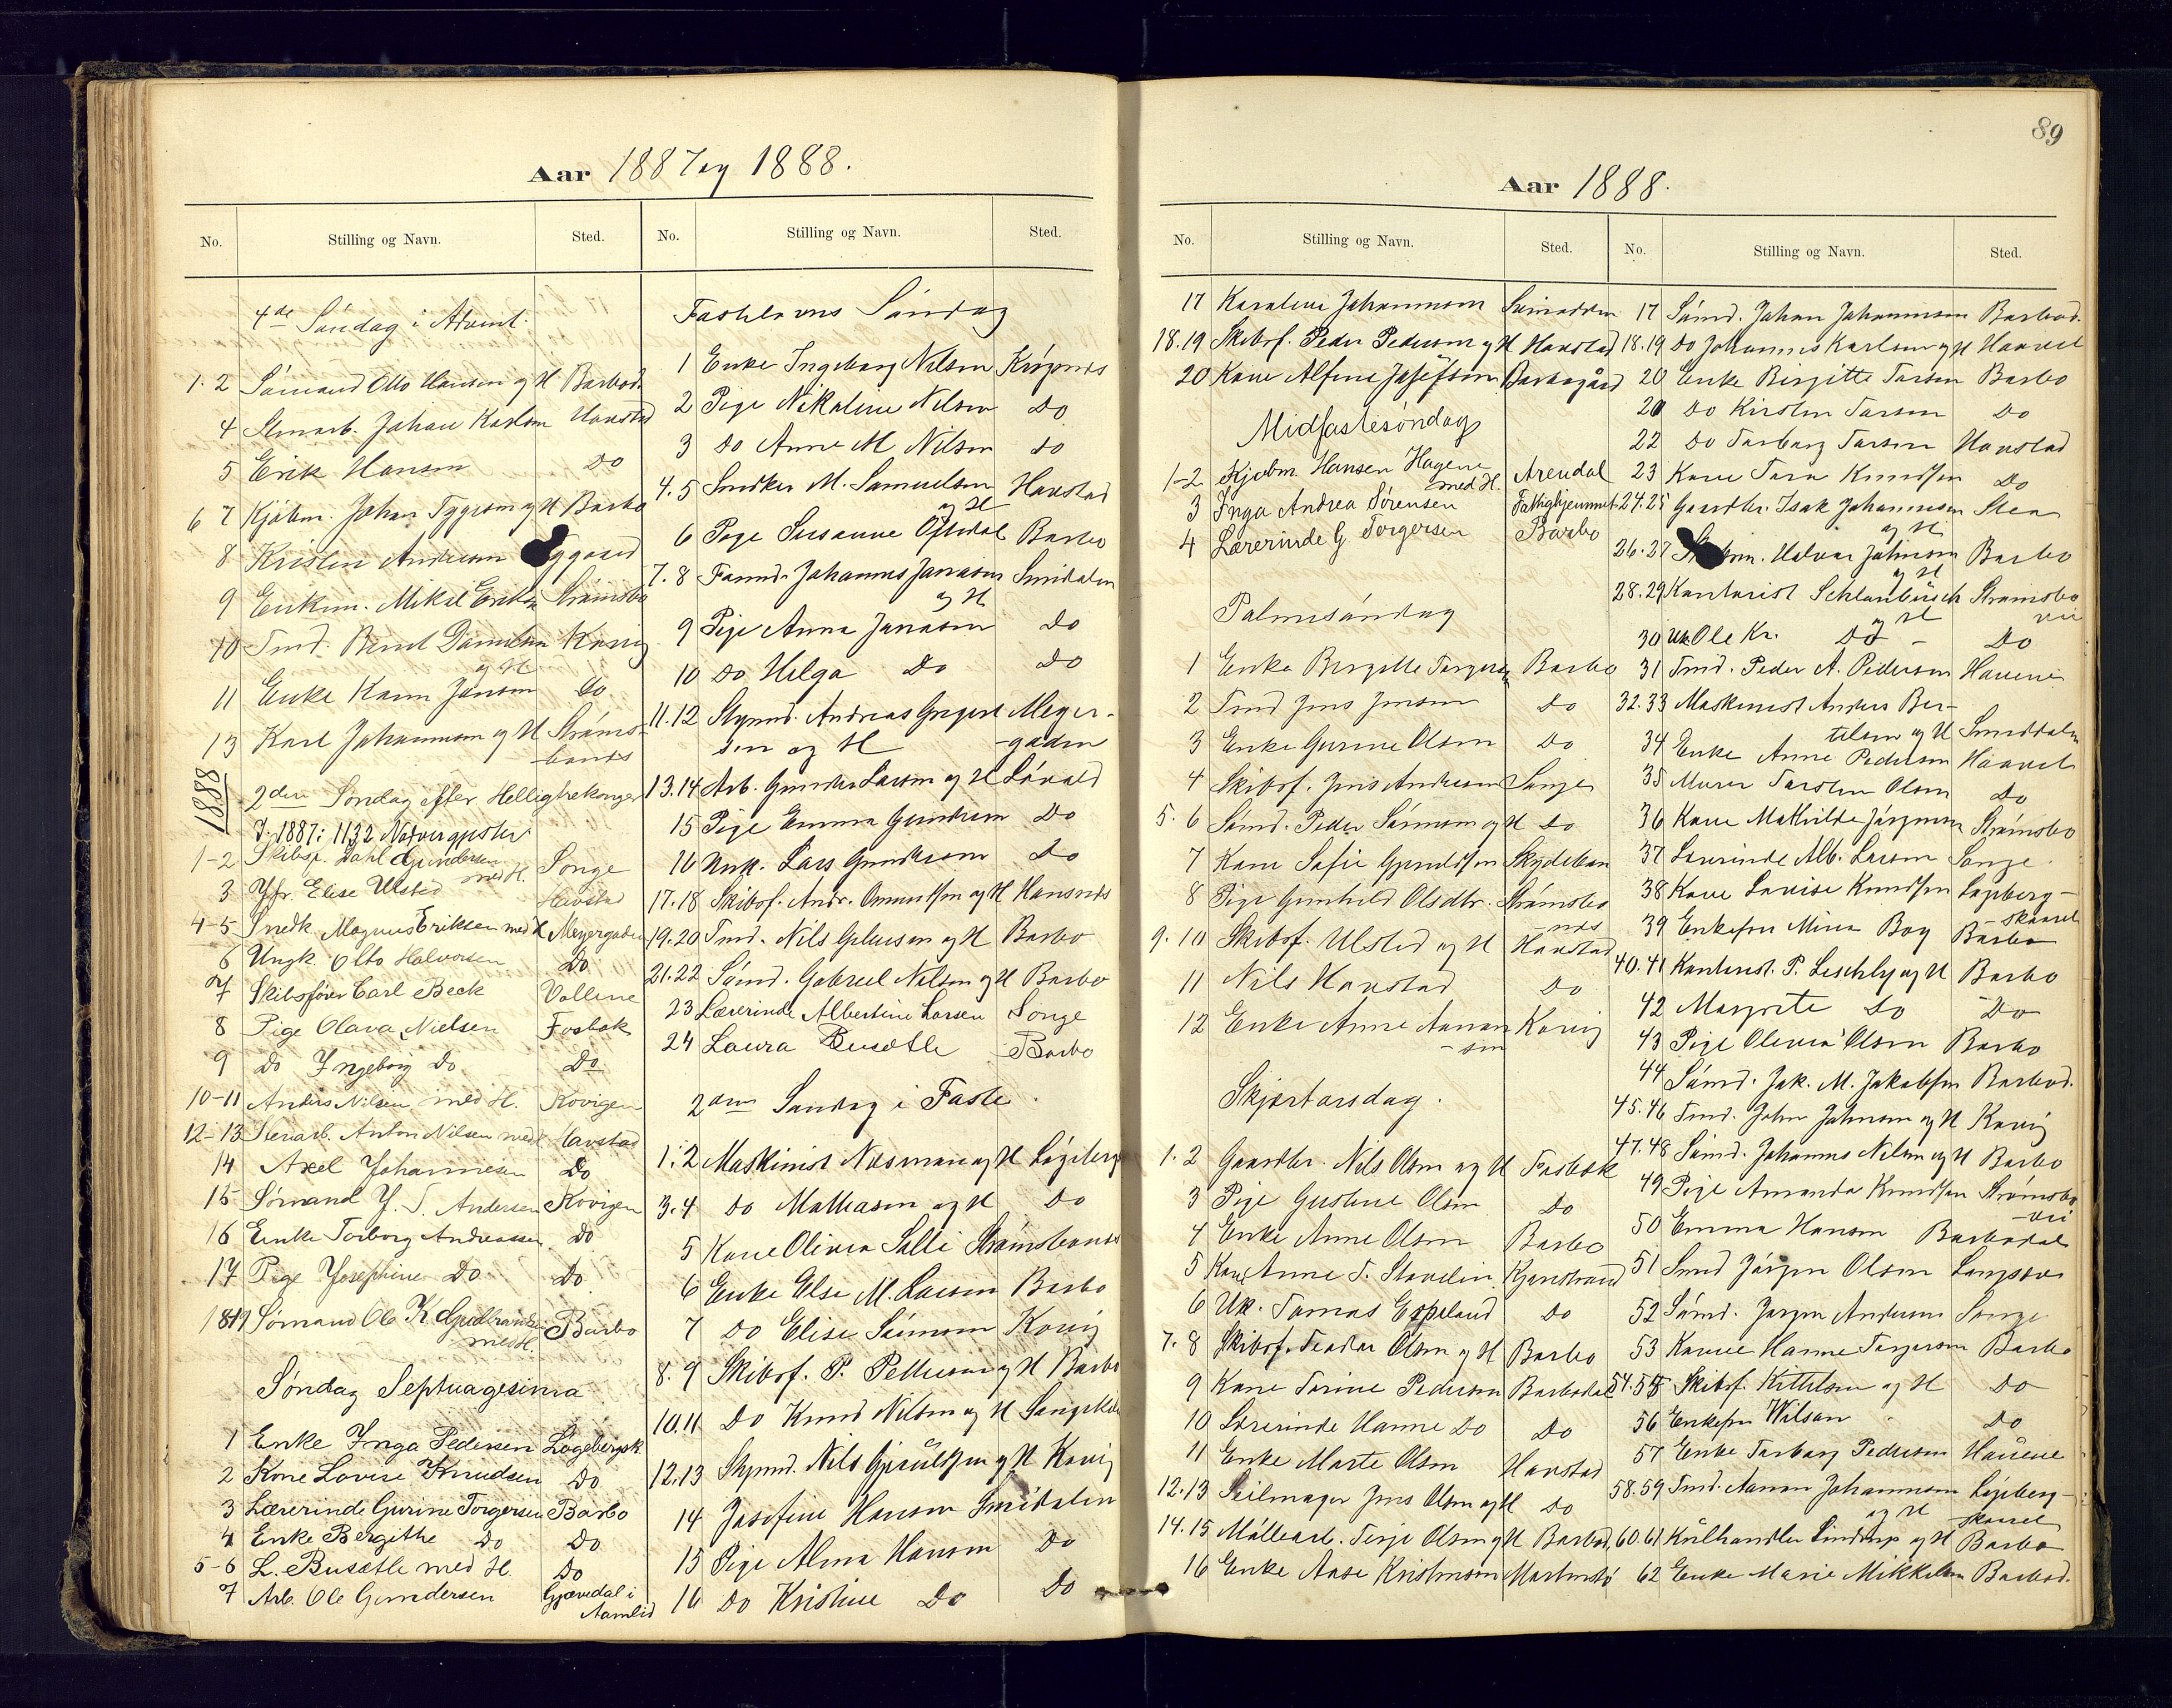 Aar 1887 og 1888.
No. Stilling og Navn. Sted.
4de Søndag i Advent.
1. 2 Sømand Otto Hansen og H Barbod.
4 Stenarb. Johan Karlsen Havstad
5 Erik Hansen Do
6 7 Kjøbm. Johan Tygesen og H Barbo
8 Kristen Andersen
9 Enkem. Mikal Eriksen Strømsbo
10 Tmd. Bernt Danielsen Kovig
og H
11 Enke Karen Jensen Do
13 Karl Johannesen og H Strøms-
bonæs
1888
2den Søndag efter Helligtrekonger
I 1887: 1132 Nadvergjester
1-2 Skibsf. Dahl Gundersen med H. Songe
3 Jfr. Elise Ulsted Havstad
4-5 Snedk. Magnus Eriksen med H Meyergaden
6 Ungk. Otto Halvorsen Do
7 Skibsfører Carl Beck Vollene
8 Pige Olava Nielsen Fosbæk
9 Do Ingeborg Do Do
10-11 Anders Nilsen med H. Kovigen
12-13 Stenarb. Anton Nilsen med H Havstad
14 Axel Johannesen Do
15 Sømand J. T. Andersen Kovigen
16 Enke Torborg Andreassen Do
17 Pige Josephine Do Do
18-19 Sømand Ole K Gudbrandsen med H. Barbo
Søndag Septuagesima
1 Enke Inga Pedersen Løgebergsk.
2 Kone Lovise Knudsen Do
3 Lærerinde Gurine Torgersen Barbo
4 Enke Bergithe Do Do
5-6 L. Busætle med H. Do
7 Arb. Ole Gundersen Gjøvedal i
Aamlid
No. Stilling og Navn. Sted.
Fastelavns Søndag
1 Enke Ingeborg Nilsen Krøgenes
2 Pige Nikoline Nilsen Do
3 Do Anne M Nilsen Do
4. 5 Snedker M. Samuelsen Havstad
og H
6 Pige Susanne Oftedal Barbo
7. 8 Tømmd. Johannes Jonasen Smidalen
og H
9 Pige Anna Jonasen Do
10 Do Helga Do Do
11. 12 Stymd. Andreas Gregert- Meyer-
sen og H -gaden
13. 14 Arb. Gunder Larsen og H Løvold
15 Pige Emma Gundersen Do
16 Ungk. Lars Gundersen Do
17. 18 Skibsf. Andr. Omundsen og H Havsnæs
19. 20 Tmd. Nils Gelausen og H Barbo
21. 22 Sømd. Gabriel Nilsen og H Barbo
23 Lærerinde Albertine Larsen Songe
24 Laura Busætle Barbo
2den Søndag i Faste.
1. 2 Maskinist Næsman og H Løgeberg
3. 4 Do Matiasen og H Do
5 Kone Olivia Salli Strømsbonæs
6 Enke Else M. Larsen Barbo
7 Do Elise Simonsen Kovig
8. 9 Skibsf. P. Pettersen og H Barbo
10. 11 Do Knud Nilsen og H
12. 13 Stymd. Nils Gjerulfsen og H Kovig
14 Josefine Hansen Smidalen
15 Pige Alma Hansen Do
16 Do Kristine Do Do
89
Aar 1888.
No. Stilling og Navn. Sted.
17 Karoline Johannesen
18. 19 Skibsf. Peder Pedersen og H Havstad
20 Kone Alfine Josefsen Barbogård
Midfastesøndag
1-2 Kjøbm. Hansen Hagene med H. Arendal
3 Inga Andrea Sørensen Fattighjemmet
4 Lærerinde G Torgersen Barbo
Palmesøndag
1 Enke Bergitte Torgersen Barbo
2 Tmd Jens Jensen Do
3 Enke Gurine Olsen Do
4 Skibsf. Jens Andersen Songe
5. 6 Sømd. Peder Sørensen og H Do
7 Kone Sofie Gjeruldsen Skydeban
8 Pige Gunhild Olsdtr. Strømsbo-
næs
9. 10 Skibsf. Ulsted og H Havstad
11 Nils Havstad Do
12 Enke Anne Aanon- Kovig
sen
Skjærtorsdag.
1. 2 Gaardbr. Nils Olsen og H Fosbæk
3 Pige Gustine Olsen Do
4 Enke Anne Olsen Barbo
5 Kone Anne T. Stavelin
6 Uk. Tomas Espeland Do
7. 8 Skibsf. Teodor Olsen og H Barbo
9 Kone Torine Pedersen Barbodal
10 Lærerinde Hanne Do Do
11 Enke Marte Olsen Havstad
12. 13 Seilmager Jens Olsen og H Do
14. 15 Møllearb. Terje Olsen og H Barbod.
16 Enke Aase Kristensen
No. Stilling og Navn. Sted.
17 Sømd. Johan Johannesen Barbod.
18. 19 Do Johannes Karlsen og H Haavet
20 Enke Birgitte Larsen Barbo
21 Do Kirsten Larsen Do
22 Do Torborg Larsen Havstad
23 Kone Tora Knudsen Do
24. 25 Gaardbr. Isak Johannesen Stea
og H
26. 27 Halvor Johnsen Barbo
og H
28. 29 Kontorist Schlanbusch Strømsbo
og H vei
30 Uk. Ole Kr. Do - Do
31 Tmd. Peder A. Pedersen Havene
32. 33 Maskinist Anders Ber-
telsen og H Smeddalen
34 Enke Anne Pedersen Haavet
35 Murer Torsten Olsen Do
36 Kone Mathilde Jørgensen Strømsbo
37 Lærerinde Alb. Larsen Songe
38 Kone Lovise Knudsen Løgeberg-
-skaaret
39 Enkefru Mina Boy Barbo
40. 41 Kontorist. P. Leschly og H Barbo
42 Margrete Do Do
43 Pige Olevia Olsen Barbo
44 Sømd. Jak. M. Jakobsen Barbod.
45. 46 Tmd. John Johnsen og H Kovig
47. 48 Sømd. Johannes Nilsen og H Barbo
49 Pige Amanda Knudsen Strømsbo
vei
50 Emma Hansen Barbodal
51 Smed Jørgen Olsen Langsæv
52 Sømd. Jørgen Andersen Songe
53 Kone Hanne Torgersen Barbo
54. 55 Skibsf. Kittelsen og H Do
56 Enkefru Wilson Do
57 Enke Torborg Pedersen Havene
58. 59 Tmd. Aanon Johannesen Løgeberg-
og H skaaret
60. 61 Kulhandler Lindtrup og H Barbo
62 Enke Marie Mikkelsen Barbod.